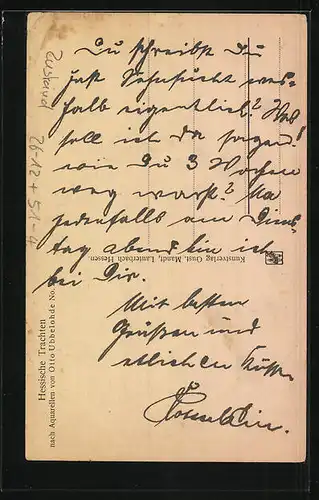 Du schreibst Du
hast Sehnsucht wes-
halb eigentlich? Was
soll ich da sagen!
wie Du 3 Wochen
weg warst? Na
jedenfalls am Diens
tag abend bin ich
bei Dir.
Mit besten
Grüßen und
etlichen Küssen
26 12 + 51 - 4
Kunstverlag Gust. Mandt, Lauterbach Hessen.
Hessische Trachten
nach Aquarellen von Otto Ubbelohde No.